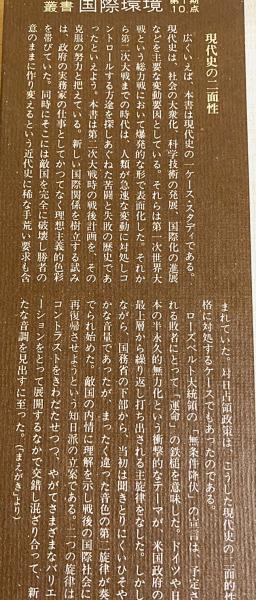 叢書 国際環境
現代史の二面性
広くいえば、本書は現代史の一ケース・スタディである。
現代史は、社会の大衆化、科学技術の発展、国際化の進展
などを主要な変動要因としている。それらは第一次世界大
戦という総力戦において爆発的な形で表面化した。それか
ら第二次大戦までの時代は、人類が急速な変動に対処しコ
ントロールする方途を探しあぐねた苦闘と失敗の歴史であ
ったといえよう。本書は第二次大戦時の戦後計画を、その
克服の努力と捉えている。新しい国際関係を樹立する試み
は、政府の実務家の仕事としてかつてなく理想主義的色彩
を帯びていた。同時にそこには敵国を完全に破壊し勝者の
意のままに作り変えるという近代史に稀な手荒い要求も含
まれていた。対日占領政策は、こうした現代史の二面的性
格に対処するケースでもあったのである。
ローズベルト大統領の「無条件降伏」の宣言は、予定さ
れる敗者にとって「運命」の鉄槌を意味した。ドイツや日
本の半永久的無力化という衝撃的なテーマが、米国政府の
最上層から繰り返し打ち出される主旋律をなした。しかし
ながら、国務省の下部から、当初は聞きとりにくいひそや
かな音量であったが、まったく違った音色の第二旋律が奏
でられ始めた。敵国の内情に理解を示し戦後の国際社会に
再復帰させようという知日派の立案である。二つの旋律は
コントラストをきわだたせつつ、やがてさまざまなバリエ
ーションをとって展開するなかで交錯し混ざり合って、新
たな音調を見出すに至った。(「まえがき」より)